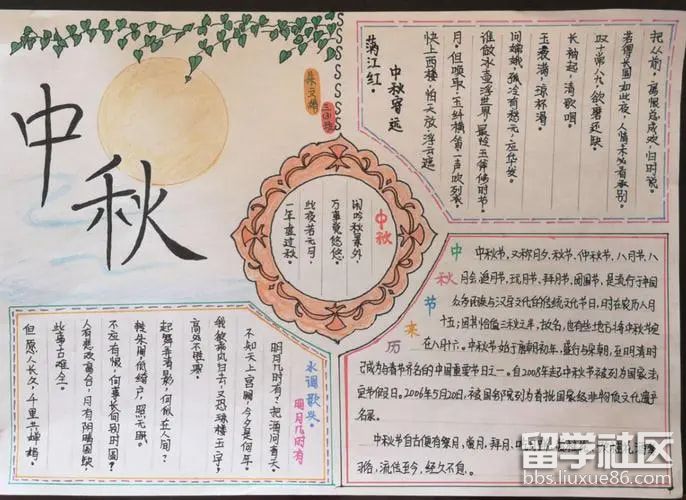 中秋
朱文婧
三(3)班
满江红·
中秋寄远
快上西楼,怕天放浮云遮
月。但唤取、玉纤横笛,一声吹裂。
谁做冰壶浮世界,最怜玉斧修时节。
问嫦娥,孤冷有愁无,应华发。
玉液满,琼杯滑。
长袖起,清歌咽。
叹十常八九,欲磨还缺。
若得长圆如此夜,人情未必看承别。
把从前,离恨总成欢,归时说。
中秋
闲吟秋景外,
万事觉悠悠。
此夜若无月,
一年虚过秋。
水调歌头·
明月几时有
明月几时有?把酒问青天。
不知天上宫阙,今夕是何年。
我欲乘风归去,又恐琼楼玉宇,
高处不胜寒。
起舞弄清影,何似在人间?
转朱阁,低绮户,照无眠。
不应有恨,何事长向别时圆?
人有悲欢离合,月有阴晴圆缺,
此事古难全。
但愿人长久,千里共婵娟。
中秋节来历
中秋节,又称月夕、秋节、仲秋节、八月节、八
月会、追月节、玩月节、拜月节、团圆节,是流行于中国
众多民族与汉字文化的传统文化节日,时在农历八月
十五;因其恰值三秋之半,故名,也有些地方将中秋节定
在八月十六。中秋节始于唐朝初年,盛行与宋朝,至明清时
已成为与春节齐名的中国重要节日之一。自2008年起中秋节被列为国家法
定节假日。2006年5月20日,被国务院列为首批国家级非物质文化遗产
名录。
中秋节自古便有祭月、赏月、拜月、
流传至今,经久不息。
留学社区
bbs.liuxue86.com